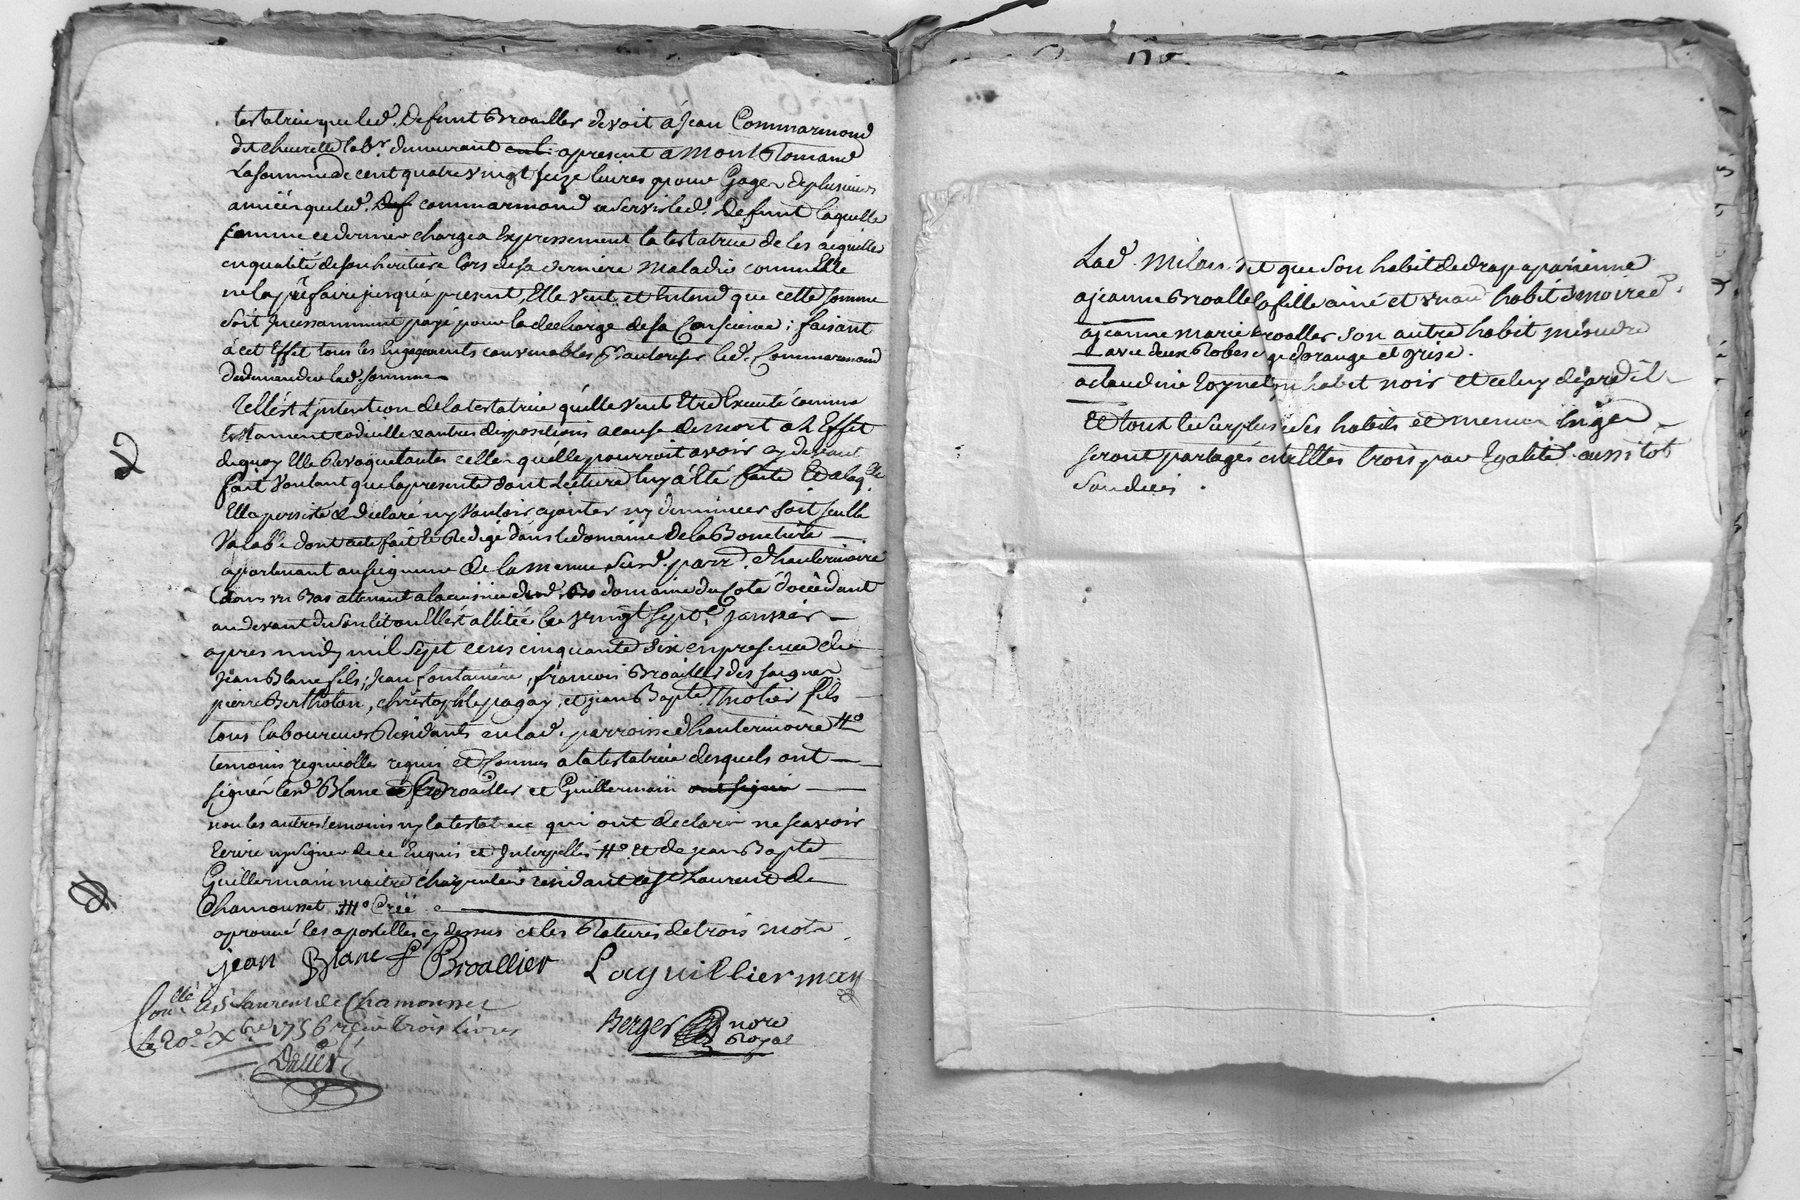 testatrice que led. Defunt Broallier devoit à jean Commarmond
dit cheurette lab.r demeurant apresent à mont Romand
la somme de cent quatre vingt seize livres pour Gages de plusieurs
années que led. Def commarmond a servi led. Defunt laquelle
somme ce dernier chargea Expressement la testatrice de les acquitter
en qualité de son heritiere lors de sa derniere maladie comme Elle
ne la pû faire jusqu'a present, Elle veut et Entend que cette somme
soit Incessamment payé pour la decharge de sa Conscience; faisant
à cet Effet tous les Engagements convenables p.r autoriser led. Commarmond
de demander lad. somme
Telle est L'intention de la testatrice qu'elle veut Etre Executé comme
testament codicille & autres dispositions a cause de mort a L'Effet
de quoy Elle Revoque toutes celles qu'elle pourroit avoir cy devant
fait voulant que la presente dont Lecture luy à Eté faite Et a laq.lle
Ella persisté & declaré ny vouloir ajouter ny diminuer soit seulle
valable dont acte fait & Redigé dans le domaine de la Bonetiere
apartenant au seigneur de la menue sur d. parr. d'hauterivoire
dans un Bas attenant a la cuisine dud. domaine du Coté d'occidant
au devant du son lit ou Elle est allitée le vingt sept.e janvier
apres midy mil sept cens cinquante six en presence de
jean Blanc fils, jean fontaniere, françois Broallier des saignes
pierre Bertholon, christophle pagay, et jean Bapte Tholier fils
tous laboureurs Residants en lad. parroisse d'hauterivoire #.o
temoins requis et connus a la testatrice desquels ont
signés led. Blanc & f Broallier et Guillermain ont signé
non les autres temoins ny la testatrice qui ont declaré ne sçavoir
Ecrire ny signer de ce Enquis et Interpellés #.o Et de jean Bapte
Guillermain maitre charpentier residant a S.t Laurent de
Chamousset
aprouvé les apostilles cy dessus et les Ratures de trois mots
jean Blanc f Broallier Laguilliermain
Con.llé à S.t Laurent de Chamousset
le 20.e X.bre 1756 reçu trois livres
Berger nore
Royal
Lad. Milan dit que son habit de drap apartienne
a jeanne Broallier la fille ainé et un au habit d'moire
a jeanne marie broallier son autre habit
avec deux Robes orange et grise.
a claudine un habit noir et celuy
Et tout le surplus de ses habits et menus linges
seront partagés entr'Elles trois par Egalité aussitot
son deces.